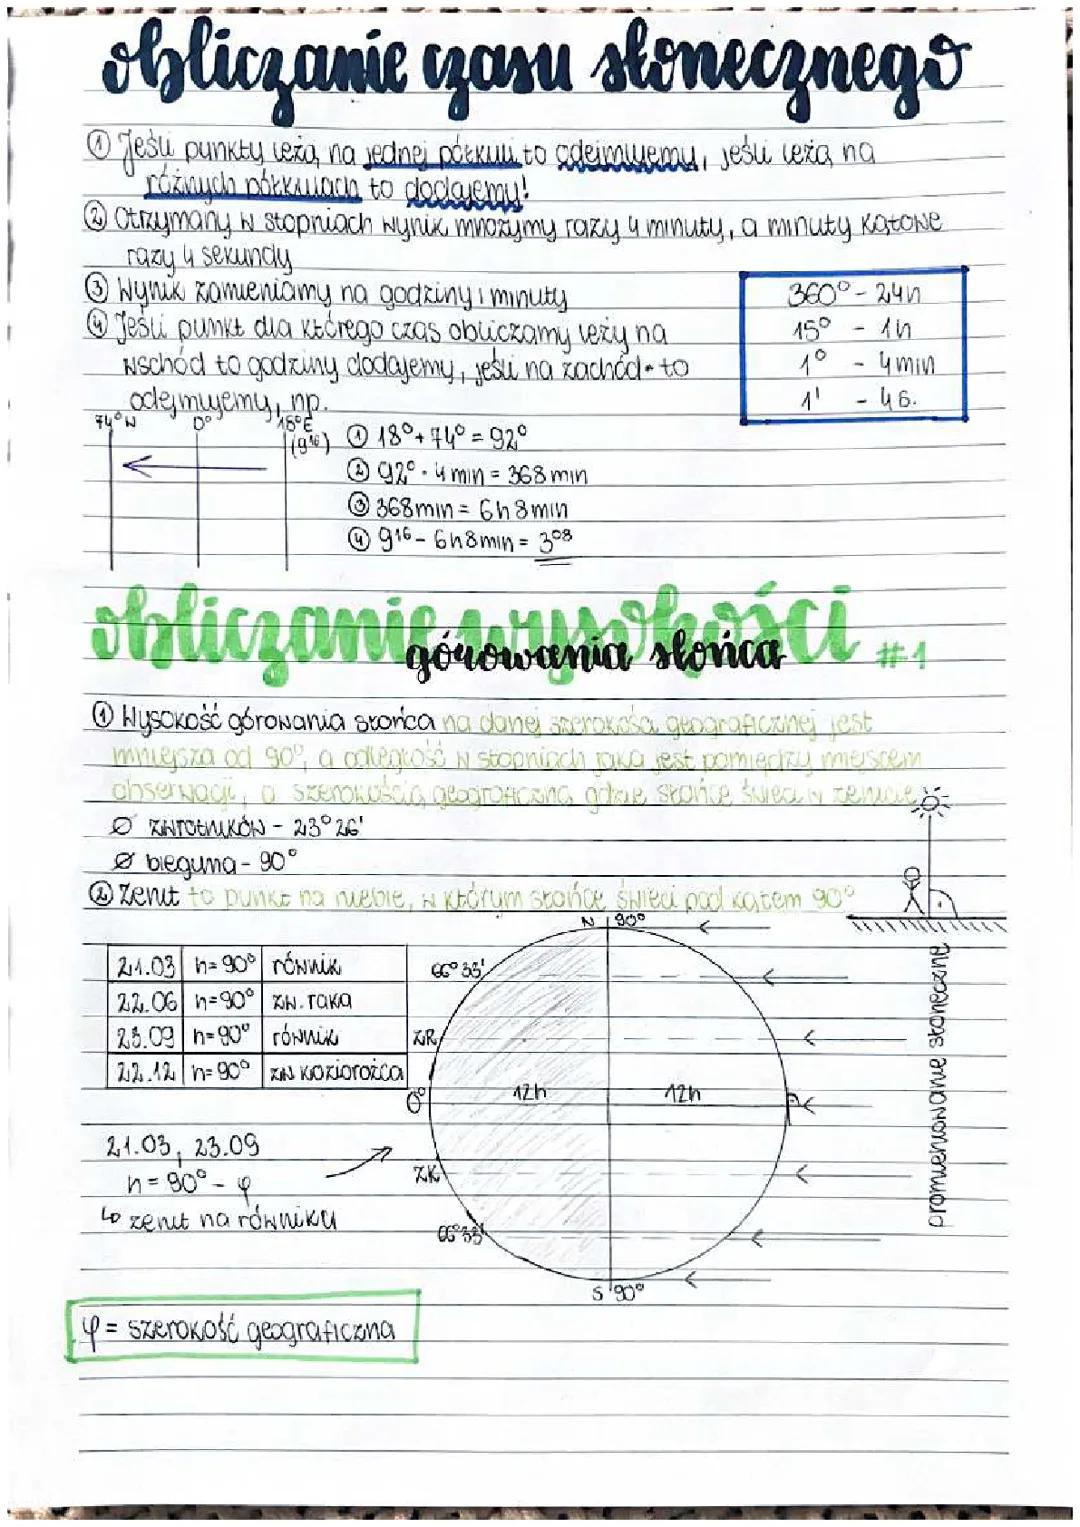 obliczanie czasu słonecznego
① Jeśli punkty leżą na jednej półkuli to odejmujemy, jeśli leżą na
różnych półkulach to dodajemy!
② Otrzymany w stopniach wynik mnożymy razy 4 minuty, a minuty kątowe
razy 4 sekundy
③ Wynik zamieniamy na godziny i minuty
④ Jeśli punkt dla którego czas obliczamy leży na
wschód to godziny dodajemy, jeśli na zachód - to
odejmujemy, np.
360° - 24h
15° - 1h
1° - 4min
1' - 4s.
74°W 0° 18°E
(9¹⁶)
① 18° + 74° = 92°
② 92° · 4 min = 368 min
③ 368min = 6h 8min
④ 9¹⁶ - 6h8min = 3⁰⁸
obliczanie wysokości #1
górowania słońca
① Wysokość górowania słońca na danej szerokości geograficznej jest
mniejsza od 90°, o odległość w stopniach jaka jest pomiędzy miejscem
obserwacji, a szerokością geograficzną gdzie słońce świeci w zenicie
Ø zwrotników - 23°26'
Ø bieguna - 90°
② Zenit to punkt na niebie, w którym słońce świeci pod kątem 90°
21.03 h=90° równik
22.06 h=90° zw. raka
23.09 h=90° równik
22.12 h=90° zw koziorożca
N 90°
66°33'
ZR
0°
12h 12h
ZK
66°33'
S 90°
promieniowanie słoneczne
21.03, 23.09
h = 90° - φ
↳ zenit na równiku
φ = szerokość geograficzna